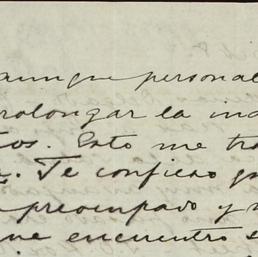 aunque personal
prolongar la ina
tos. Esto me tra
Te confieso qu
preocupado y
me encuentro s